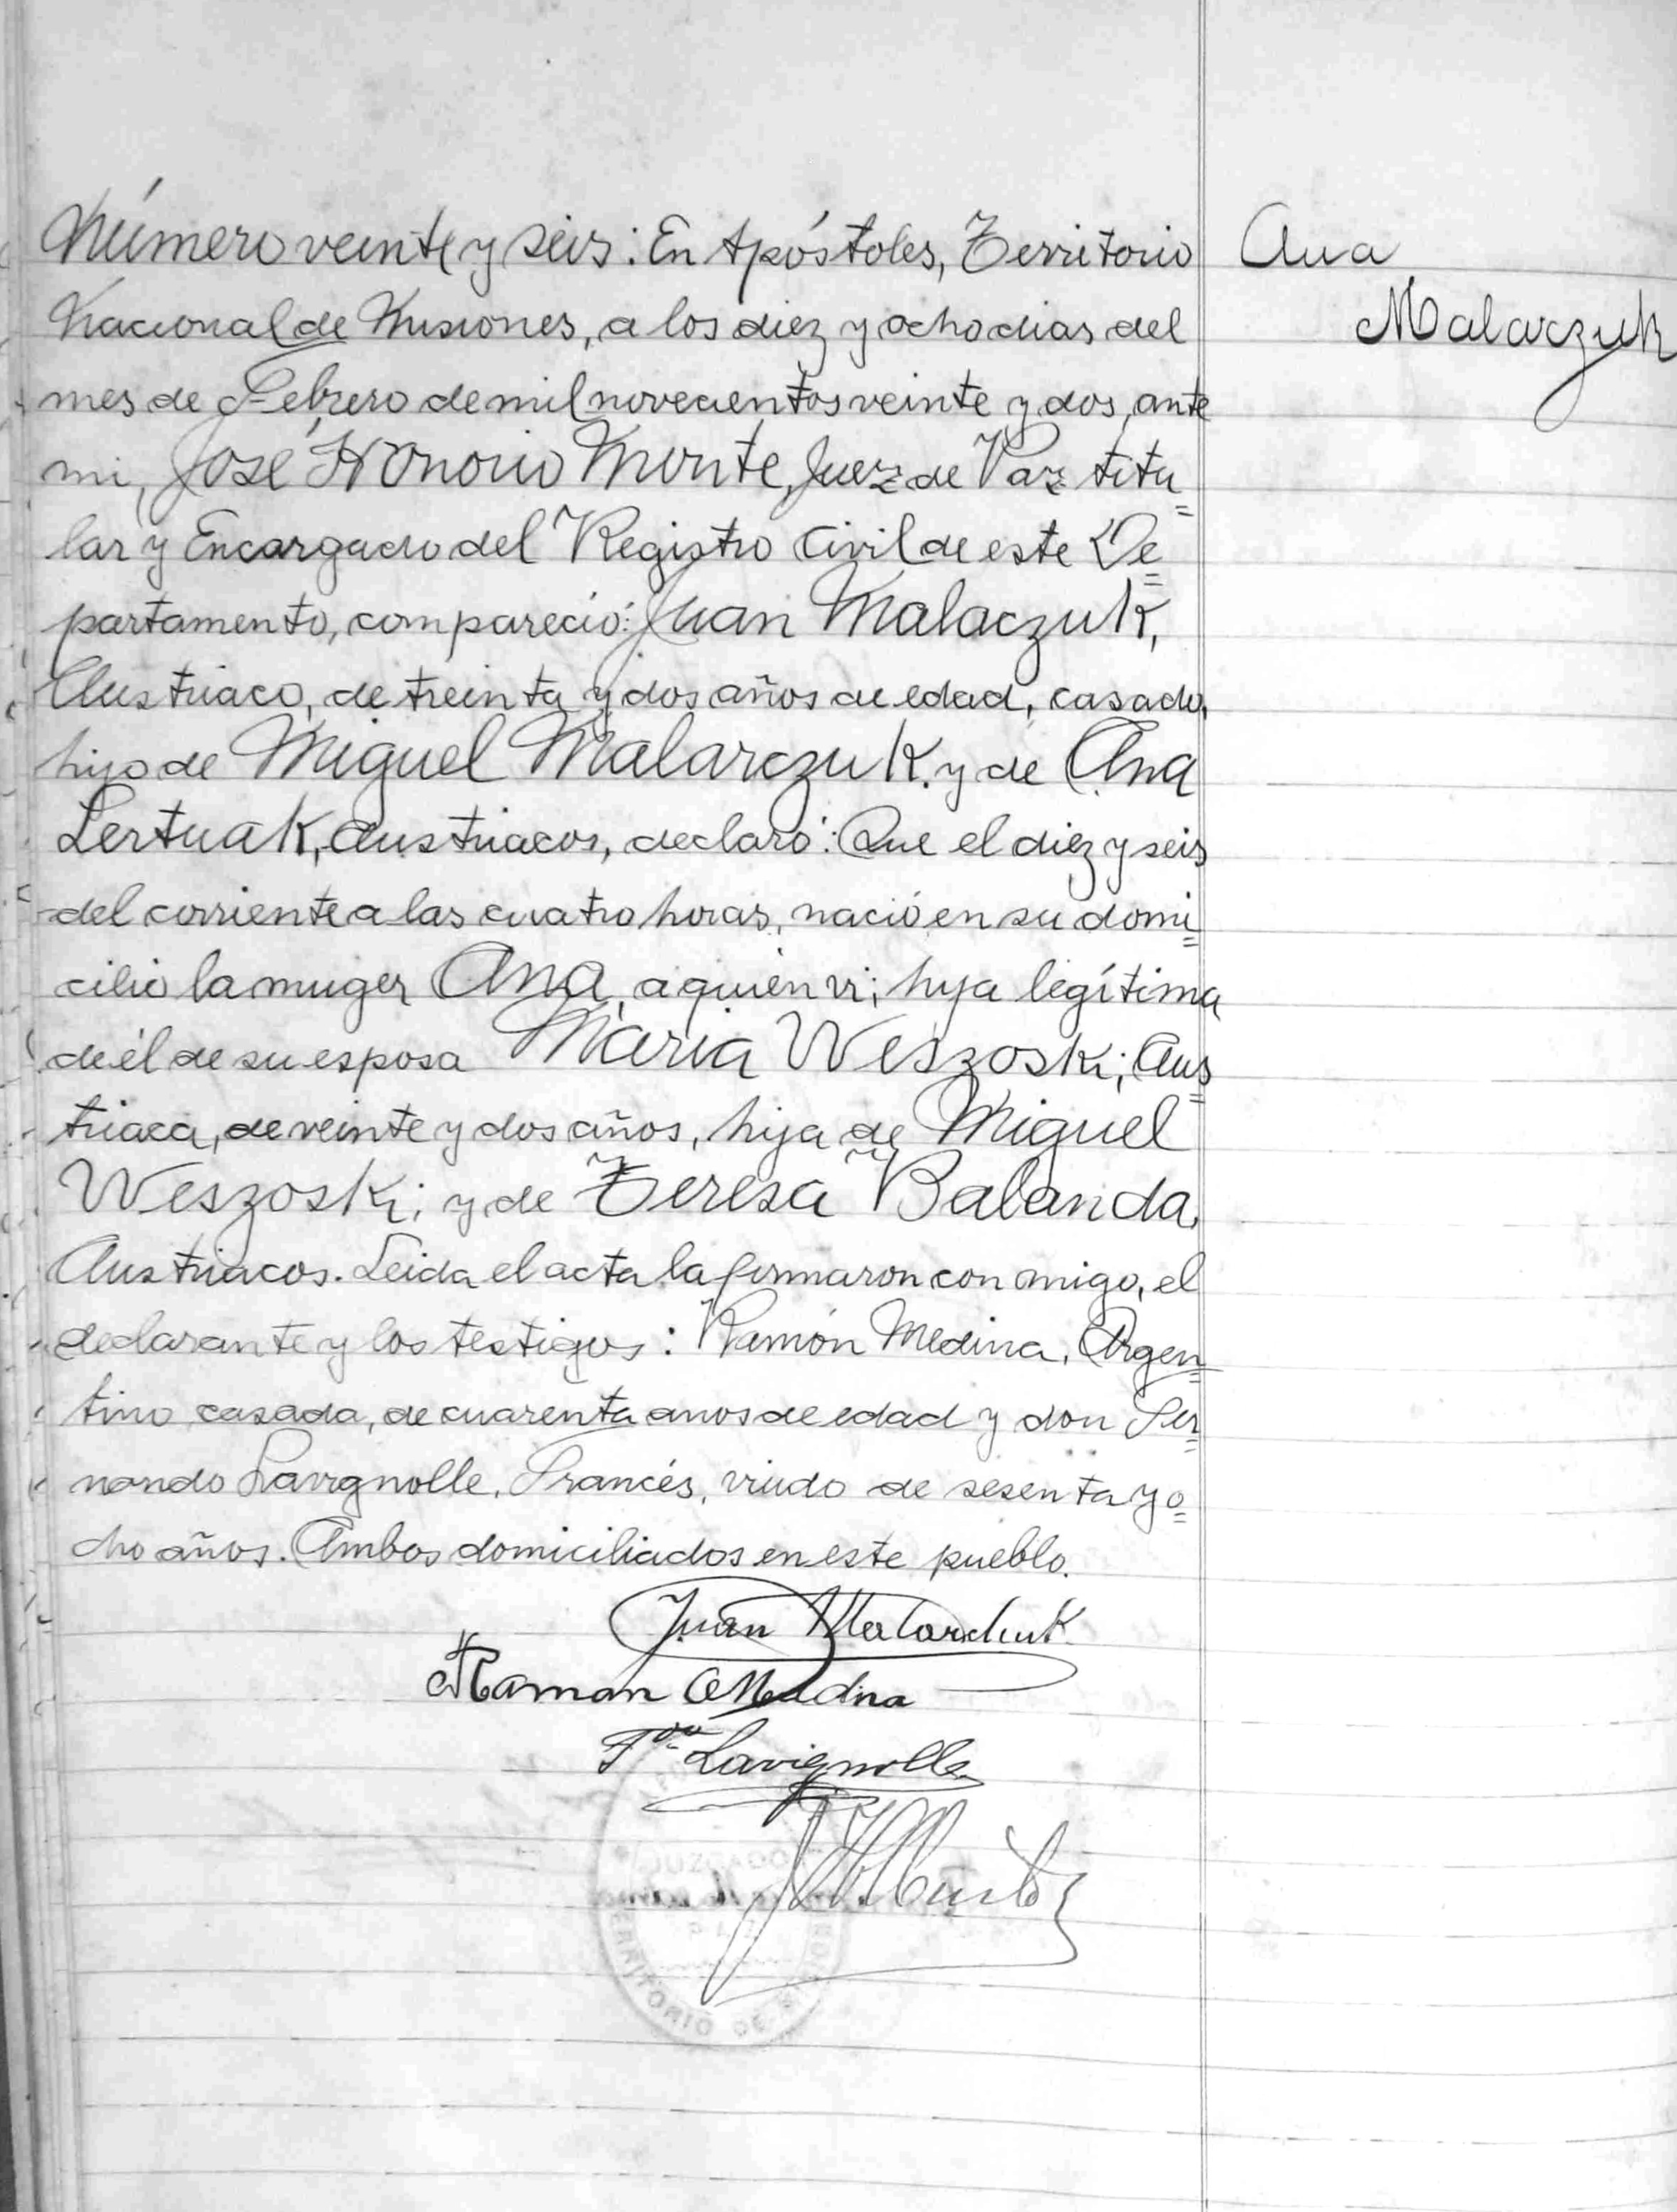 Número veinte y seis: En Apóstoles, Territorio
Nacional de Misiones, a los diez y ocho dias del
mes de Febrero de mil novecientos veinte y dos, ante
mi, José Honorio Monte, Juez de Paz titu=
lar y Encargado del Registro Civil de este De=
partamento, compareció: Juan Malaczuk,
Austriaco, de treinta y dos años de edad, casado,
hijo de Miguel Malarczuk y de Ana
Lertuak, Austriacos, declaró: Que el diez y seis
del corriente a las cuatro horas, nació en su domi=
cilio la muger Ana, a quien vi; hija legítima
de él de su esposa Maria Weszoski; Aus=
triaca, de veinte y dos años, hija de Miguel
Weszoski; y de Teresa Balanda,
Austriacos. Leida el acta la firmaron con migo, el
declarante y los testigos: Ramón Medina, Argen=
tino casada, de cuarenta anos de edad y don Fer=
nando Lavignolle, Francés, viudo de sesenta y o=
cho años. Ambos domiciliados en este pueblo.
Juan Malarchuk
Ramon Medina
Fdo Lavignolle
JUZGADO
TERRITORIO DE MISIONES
Ana
Malarczuk